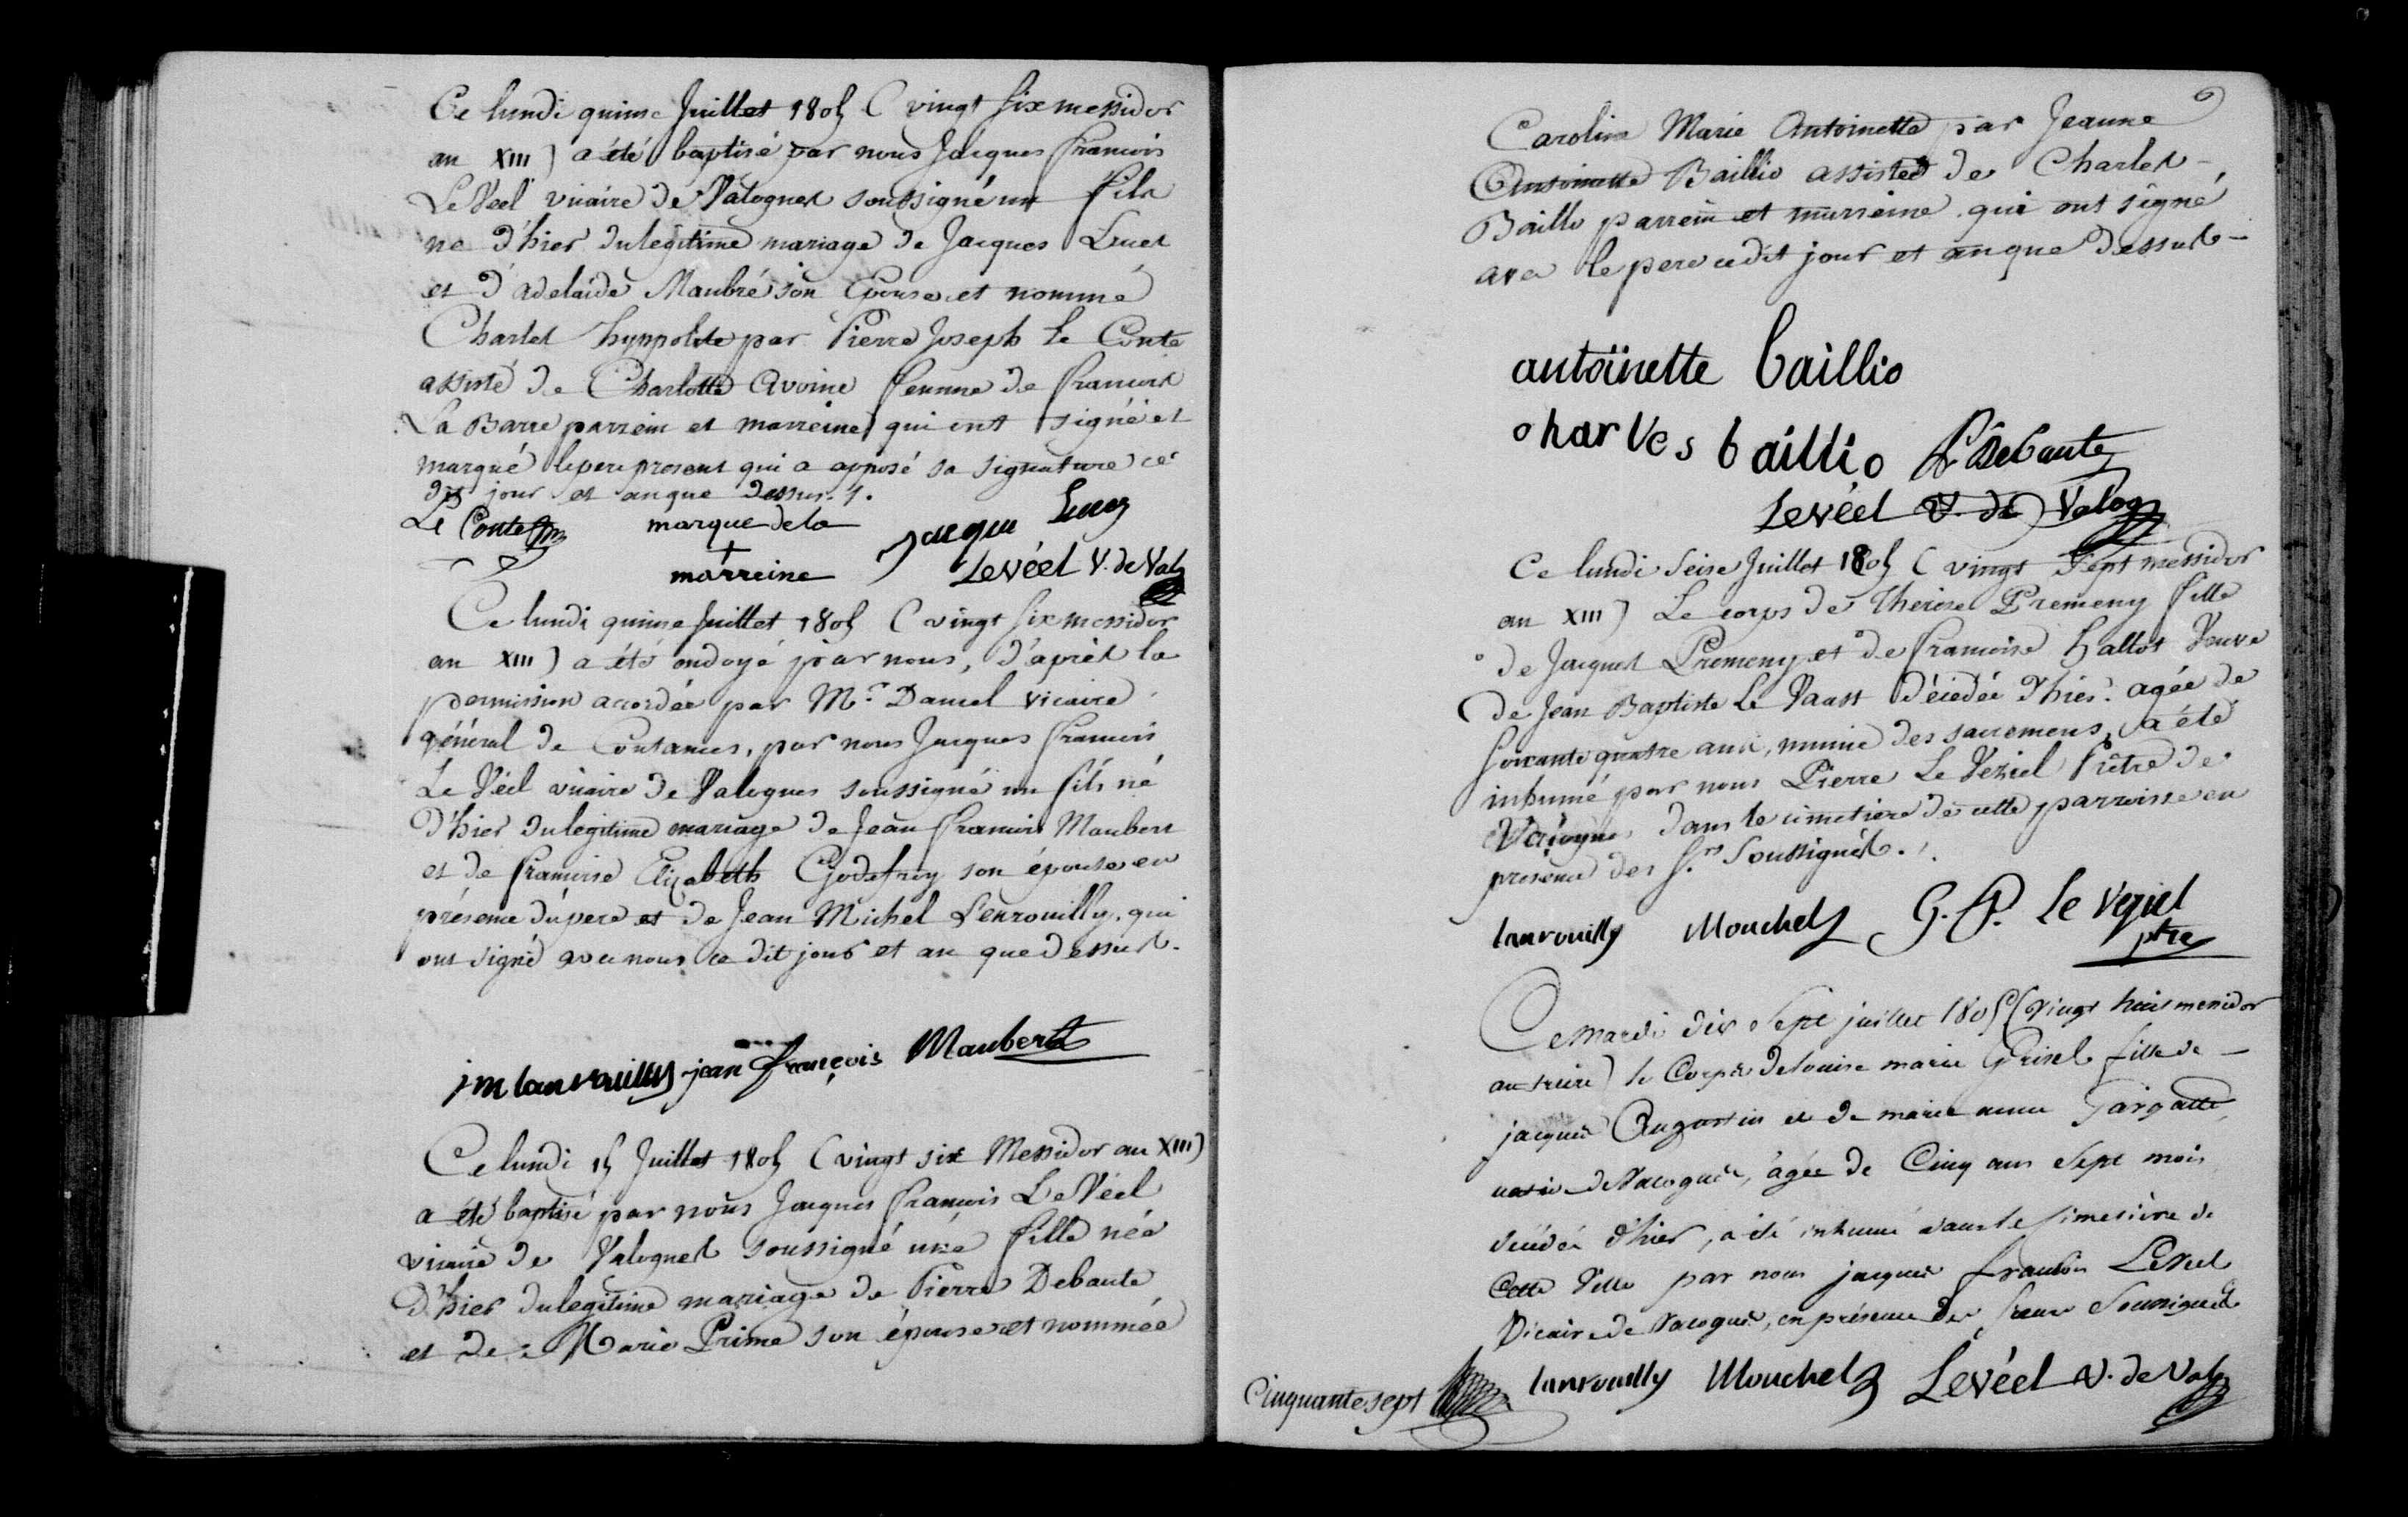 Ce lundi quinse Juillet 1805 (vingt six messidor
an XIII) a été baptisé par nous Jacques francois
Le Véel vicaire de Valognes soussigné un fils
né d'hier du legitime mariage de Jacques Lucet
et d'adelaide Maubré son Epouse et nommé
Charles hyppolite par Pierre Joseph Le Conte
assisté de Charlotte Avoine femme de francois
La Barre parrein et marreine qui ont signé et
marqué le pere present qui a apposé sa signature ce
dit jour et an que dessus ./.
Le Conte marque de la Jacque Lucez
+
marreine Levéel V. de Val
Ce lundi quinse Juillet 1805 (vingt six messidor
an XIII) a été ondoyé par nous, d'après la
permission accordée par Mr. Daniel vicaire
général de Coutances, par nous Jacques francois
Le Véel vicaire de Valognes soussigné un fils né
d'hier du legitime mariage de Jean francois Maubert
et de francoise Elizabeth Godefroy son épouse en
présence du pere et de Jean Michel Lenrouilly, qui
ont signé avec nous ce dit jour et an que dessus.
jm lanrouilly jean françois Maubert
Ce lundi 15 Juillet 1805 (vingt six Messidor an XIII)
a été baptisé par nous Jacques francois Le Véel
vicaire de Valognes soussigné une fille née
d'hier du legitime mariage de Pierre Debaute
et de Marie Prime son épouse et nommée
Caroline Marie Antoinette par Jeanne
Antoinette Baillio assistée de Charles
Baillo parrein et marreine qui ont signé
avec le pere cedit jour et an que dessus
antoinette baillio
charles baillio P Debaute
Levéel V. de Valog
Ce lundi seise Juillet 1805 (vingt sept messidor
an XIII) Le corps de Therese Premeny fille
de Jacques Premeny et de francoise hallot Veuve
de Jean Baptiste Le Vaast décédée d'hier agée de
soixante quatre ans, munie des sacremens, a été
inhumé par nous Pierre Le Véziel Prêtre de
Valognes dans le cimetiere de cette parroisse en
presence des Srs. Soussignés ./.
lanrouilly Mouchel G. P. Le Veziel
ptre
Ce Mardi dix Sept juillet 1805 (vingt huit messidor
an treize) le Corps de louise marie Grisel fille de
jacques Augustin et de marie anne Targatte
de Valognes, âgée de Cinq ans Sept mois
décédée d'hier, a été inhumé dans le simetière de
Cette Ville par nous jacques francois Levéel
Vicaire de Valognes, en présence des sieurs Soussignés
Cinquante sept lanrouilly Mouchel Levéel V. de Val